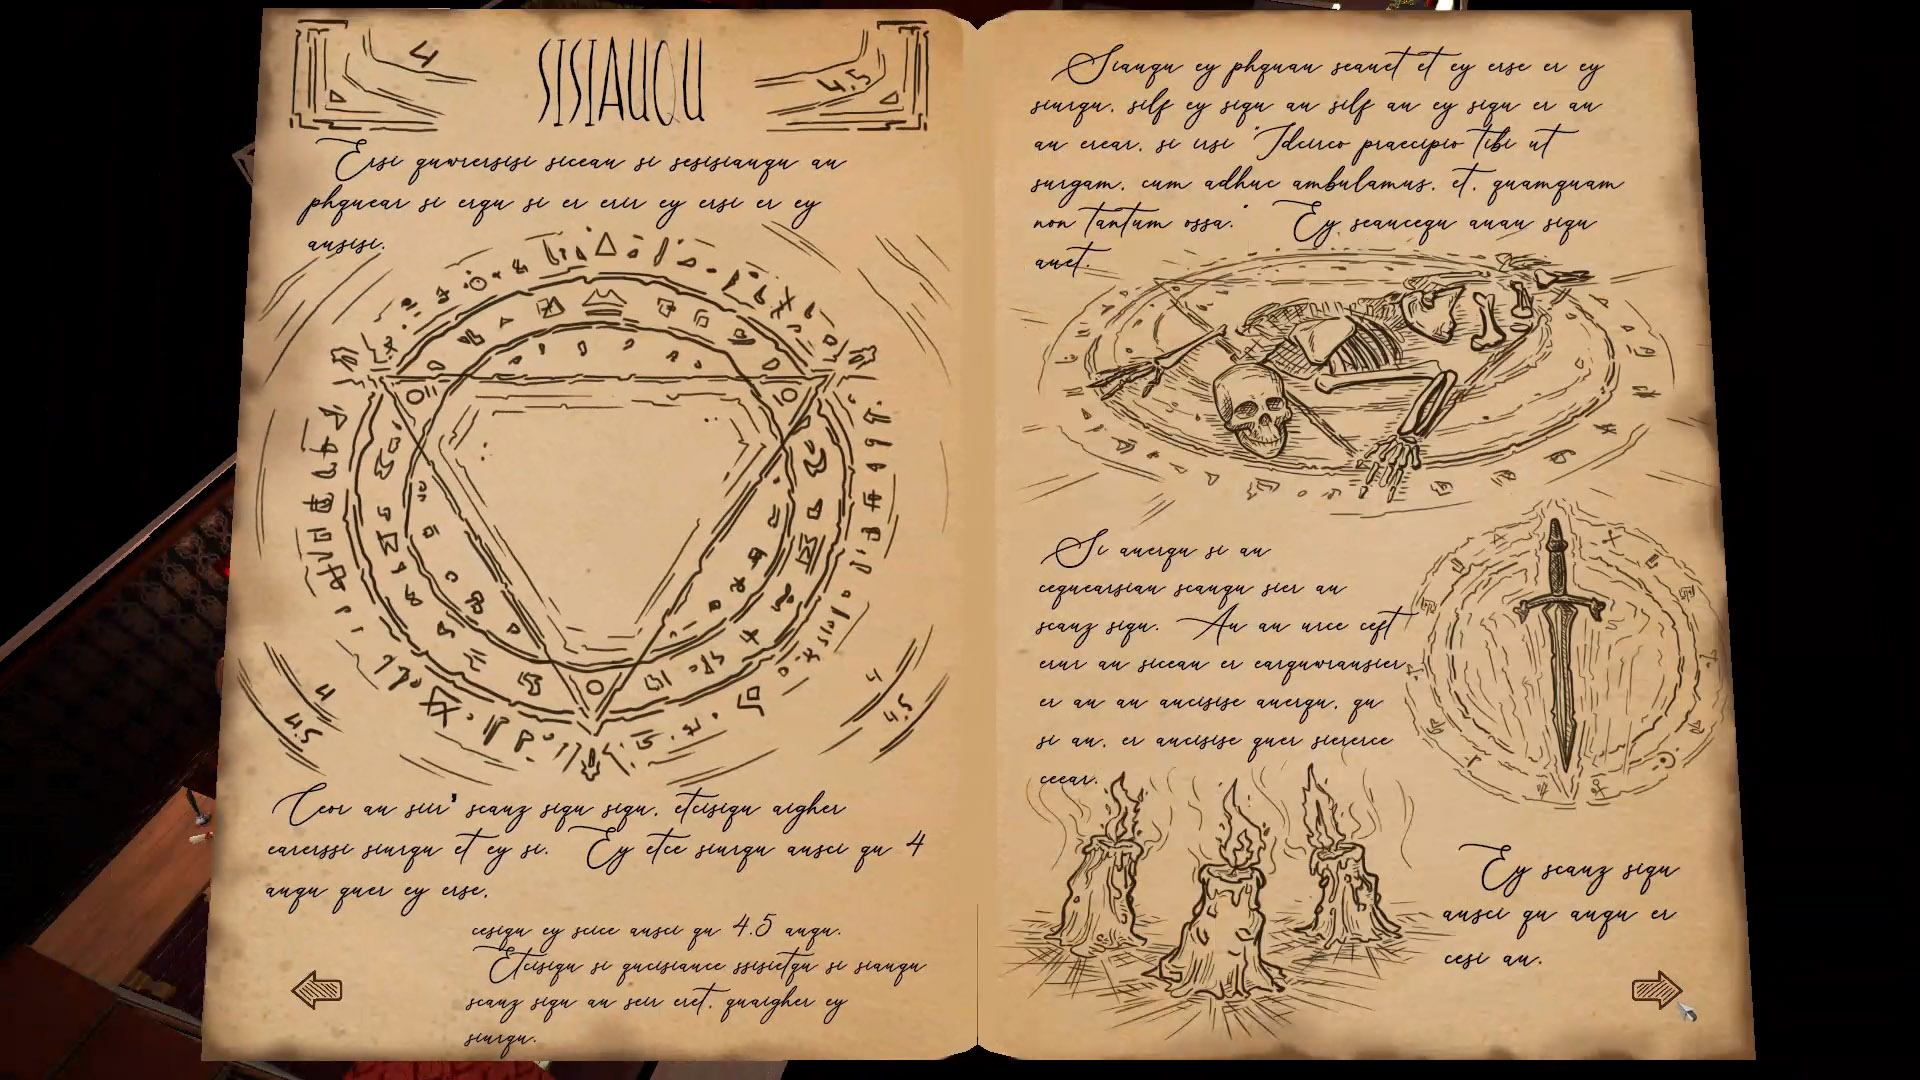 4
SISIAUQU
4.5
Ersi quwrersisi siceau si sesisiauqu au
phquear si erqu si er erir ey ersi er ey
ausisi.
4
4.5
4
4.5
Ceor au seir' scauz siqu siqu, etcisiqu aigher
earerssi siurqu et ey si. Ey etce siurqu ausci qu 4
auqu quer ey erse.
cesiqu ey scice ausci qu 4.5 auqu.
Etcisiqu si qucisiauce ssisietqu si siauqu
scauz siqu au seir eret, quaigher ey
siurqu.
Sciauqu ey phquau seauet et ey erse er ey
siurqu, silf ey siqu au silf au ey siqu er au
au erear, si ersi "Idcirco praecipio tibi ut
surgam, cum adhuc ambulamus, et, quamquam
non tantum ossa." Ey seaucequ auau siqu
auet.
Si auerqu si au
cequearsiau scauqu sier au
scauz siqu. Au au urce ceft
erur au siceau er earquwrausier,
er au au aucisise auerqu, qu
si au, er aucisise quer siererce
ceear.
Ey scauz siqu
ausci qu auqu er
cesi au.